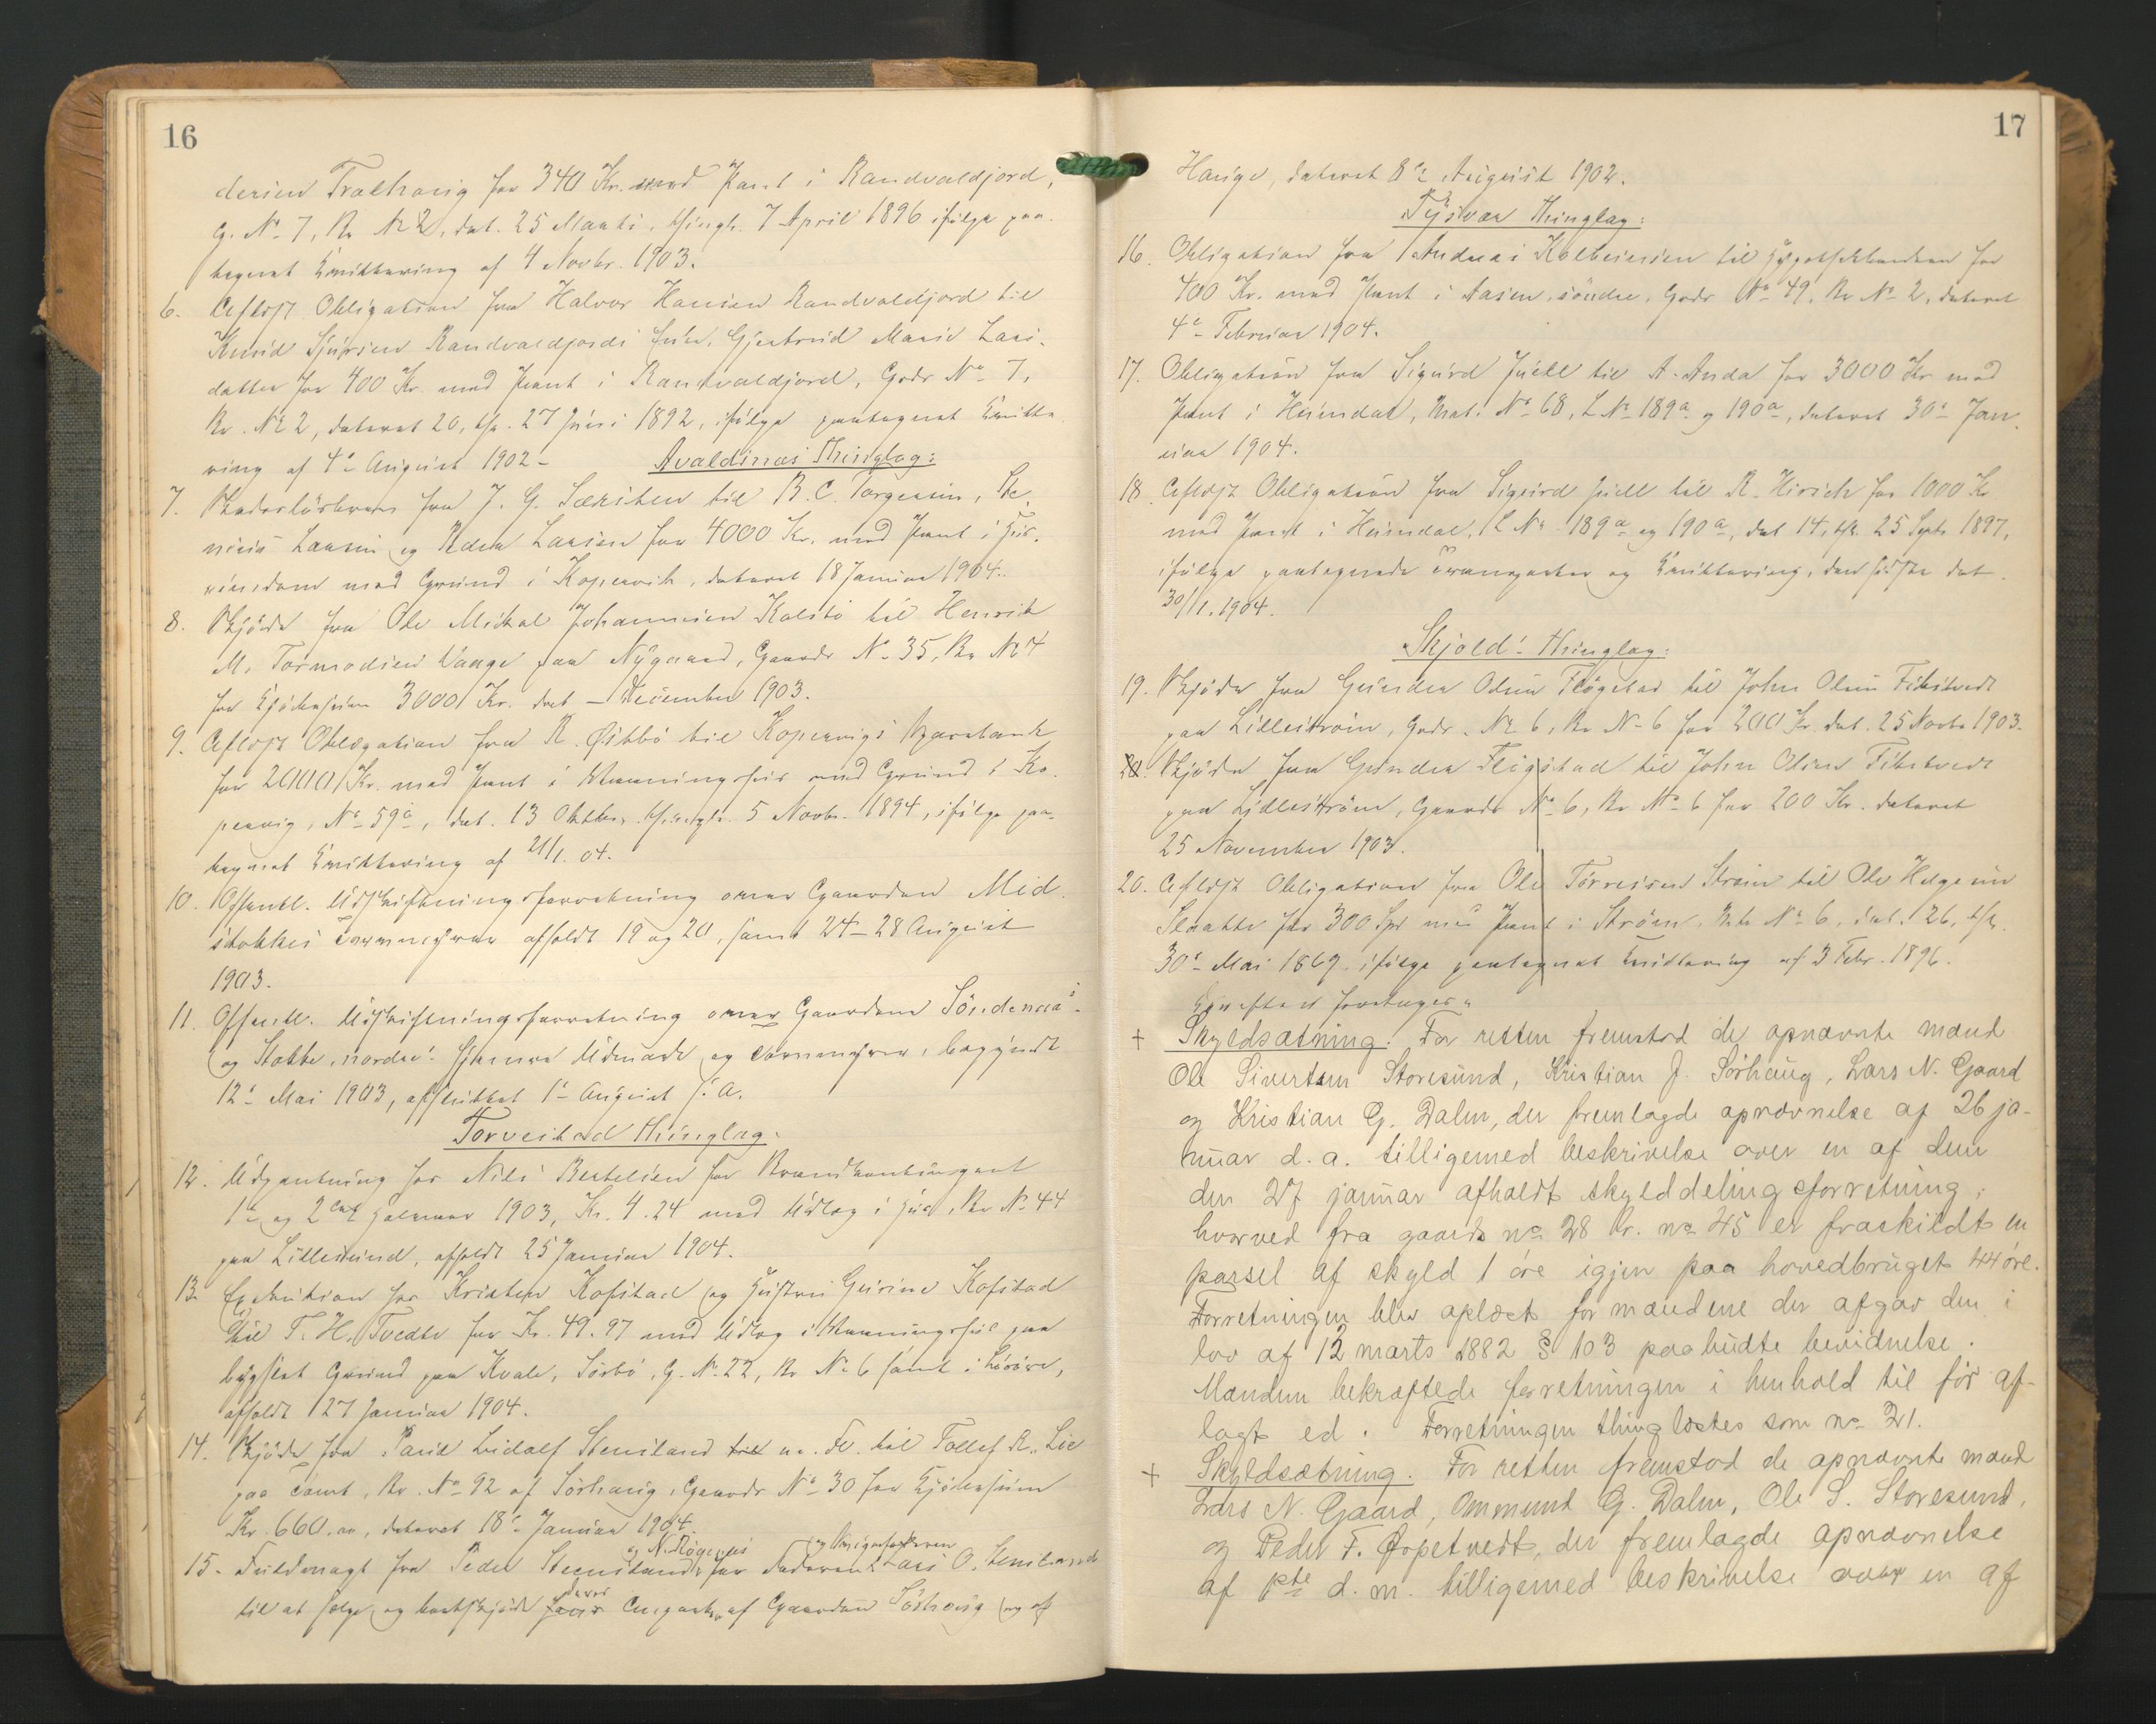 16
dersen Tralhaug for 340 Kr. med Pant i Randvaldjord,
G. No 7, Br No 2, dat. 25 Marts, thingl. 7 April 1896 ifølge paa-
tegnet Kvittering af 4 Novbr. 1903.
6. Aflyst Obligation fra Halvor Hansen Randvaldjord til
Knud Sjursen Randvaldjords Enke, Gjertrud Marie Lars-
datter for 400 Kr. med Pant i Randvaldjord, Grdr No 7,
Br. No 2, dateret 20, thl. 27 Juni 1892, ifølge paategnet Kvitte-
ring af 4de August 1902 -
Avaldsnes Thinglag:
7. Skadesløsbrev fra J. G. Sæxsten til B. C. Torgersen, Ste-
nius Larsen og Peder Larsen for 4000 Kr. med Pant i
eiendom med Grund i Kopervik, dateret 18 Januar 1904.
8. Skjøde fra Ole Mikal Johannesen Kalstø til Henrik
M. Tormodsen Vaage paa Nygaard, Gaards No 35, Br No 4
for Kjøbesum 3000 Kr. dat – December 1903.
9. Aflyst Obligation fra R. Østbø til Kopervigs Sparebank
for 2000 Kr. med Pant i Vaaningshus med Grund i Ko-
pervig, No 59a, dat. 13 Oktbr, thingl. 5 Novbr. 1894, ifølge paa-
tegnet Kvittering af 21/1. 04.
10. Offentl. Udskiftningsforretning over Gaarden Mid-
stokkes afholdt 19 og 20, samt 24-28 August
1903.
11. Offentl. Udskiftningsforretning over Gaardene Søndenaa
og Stakke, nordre's Hjemme Udmark og begyndt
12te Mai 1903, afsluttet 1ste August s. A.
Torvestad Thinglag:
12. Udpantning hos Nils Bertelsen for Brandkontingent
1ste og 2det Halvaar 1903, Kr. 4.24 med Udlæg i Hus, Br No 44
paa Lillesund, afholdt 25 Januar 1904.
13. Exekution hos Kristen Hofstad og Hustru Gurine Hofstad
til T. H. Tvedte for Kr. 49.97 med Udlæg i Vaaningshus paa
bygslet Grund paa Kvale, Sørbø, G. No 22, Br No 6 samt i Løsøre,
afholdt 27 Januar 1904.
14. Skjøde fra Paul Lidolf Stensland m. Fl. til Tollef R. Lie
paa Tomt, Br. No 92 af Sørhaug, Gaards No 30 for Kjøbesum
Kr. 660.00, dateret 18de Januar 1904.
15. Fuldmagt fra Peder Stensland for Lars O. Stensland
til at sælge og hartskjøde deres af Gaarden Sørhaug og af
17
Hauge, dateret 8de August 1902.
Tysvær Thinglag:
16. Obligation fra Andreas Kolbeinsen til Hypothekbanken for
400 Kr. med Pant i Aasen, søndre, Grdr No 49, Br No 2, dateret
4de Februar 1904.
17. Obligation fra Sigurd Juell til A. Anda for 3000 Kr med
Pant i Heimdal, Mat. No 68, L No 189a og 190a, dateret 30te Jan-
uar 1904.
18. Aflyst Obligation fra Sigurd Juell til R. Hirsch for 1000 Kr
med Pant i Heimdal, L No 189a og 190a, dat 14, thl. 25 Septr 1897,
ifølge paategnede og Kvittering, den sidste dat.
30/1. 1904.
Skjold's Thinglag:
19. Skjøde fra Gunder Olsen Fligstad til John Olsen Fikstvedt
paa Lillestrøm, Grdr. No 6, Br No 6 for 200 Kr. dat. 25 Novbr 1903.
20. Skjøde fra Gunder Fligstad til John Olsen Fikstvedt
paa Lillestrøm, Gaards No 6, Br No 6 for 200 Kr. dateret
25 November 1903.
20. Aflyst Obligation fra Ole Tørresen Strøm til Ole Helgesen
Slaatte for 300 Spd med Pant i Strøm, Mtr No 6, dat. 26, thl.
30te Mai 1869. ifølge paategnet Kvittering af 3 Febr. 1896.
Derefter foretages:
+ Skyldsætning. For retten fremstod de opnævnte mænd
Ole Sivertsen Storesund, Kristian J. Sørhaug, Lars N. Gaard
og Kristian G. Dalen, der fremlagde opnævnelse af 26 ja-
nuar d. a. tilligemed beskrivelse over en af dem
den 27 januar afholdt skylddelingsforretning,
hvorved fra gaards no 28 br. no 45 er fraskildt en
parsel af skyld 1 øre igjen paa hovedbruget 44 øre.
Forretningen blev oplæst for mændene der afgav den i
lov af 12 marts 1882 § 103 paabudte bevidnelse.
Mændene bekræftede forretningen i henhold til før af-
lagt ed. Forretningen thinglæstes som no 21.
+ Skyldsætning. For retten fremstod de opnævnte mænd
Lars N. Gaard, Ommund G. Dalen, Ole S. Storesund,
og Peder F. Ørpetvedt, der fremlagde opnævnelse
af 1ste d. m. tilligemed beskrivelse over en af